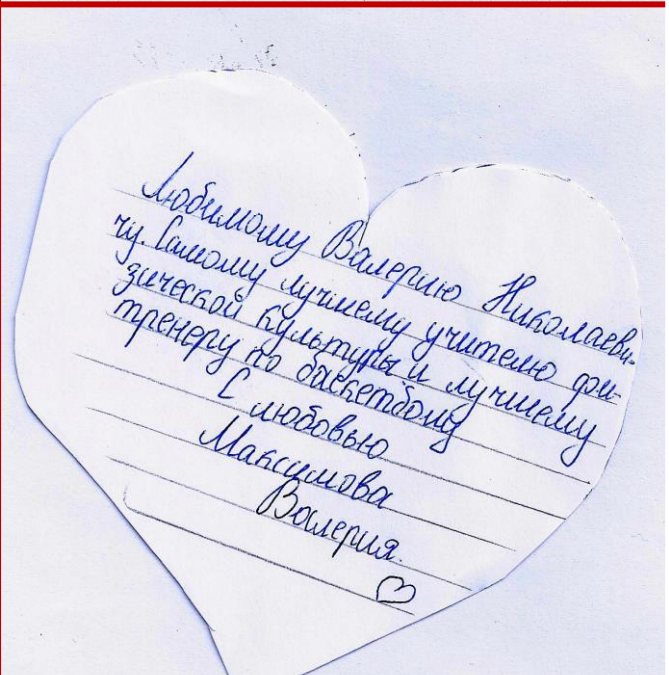 Любимому Валерию Николаеви-
чу. Самому лучшему учителю фи-
зической культуры и лучшему
тренеру по баскетболу
С любовью
Максимова
Валерия.